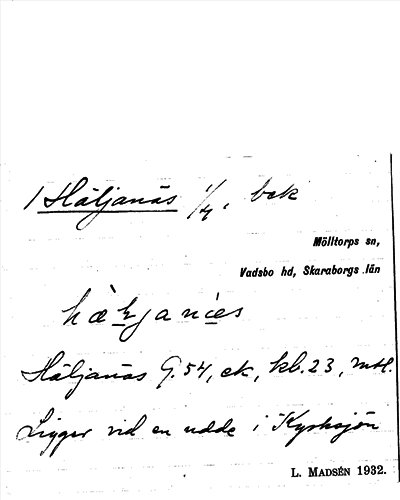 / Häljanäs 1/4, bek
Mölltorps sn,
Vadsbo hd, Skaraborgs län
Häljanäs G.54, ek, kbl.23, mtl.
Ligger vid en udde i Kyrksjön
L. MADSÉN 1932.